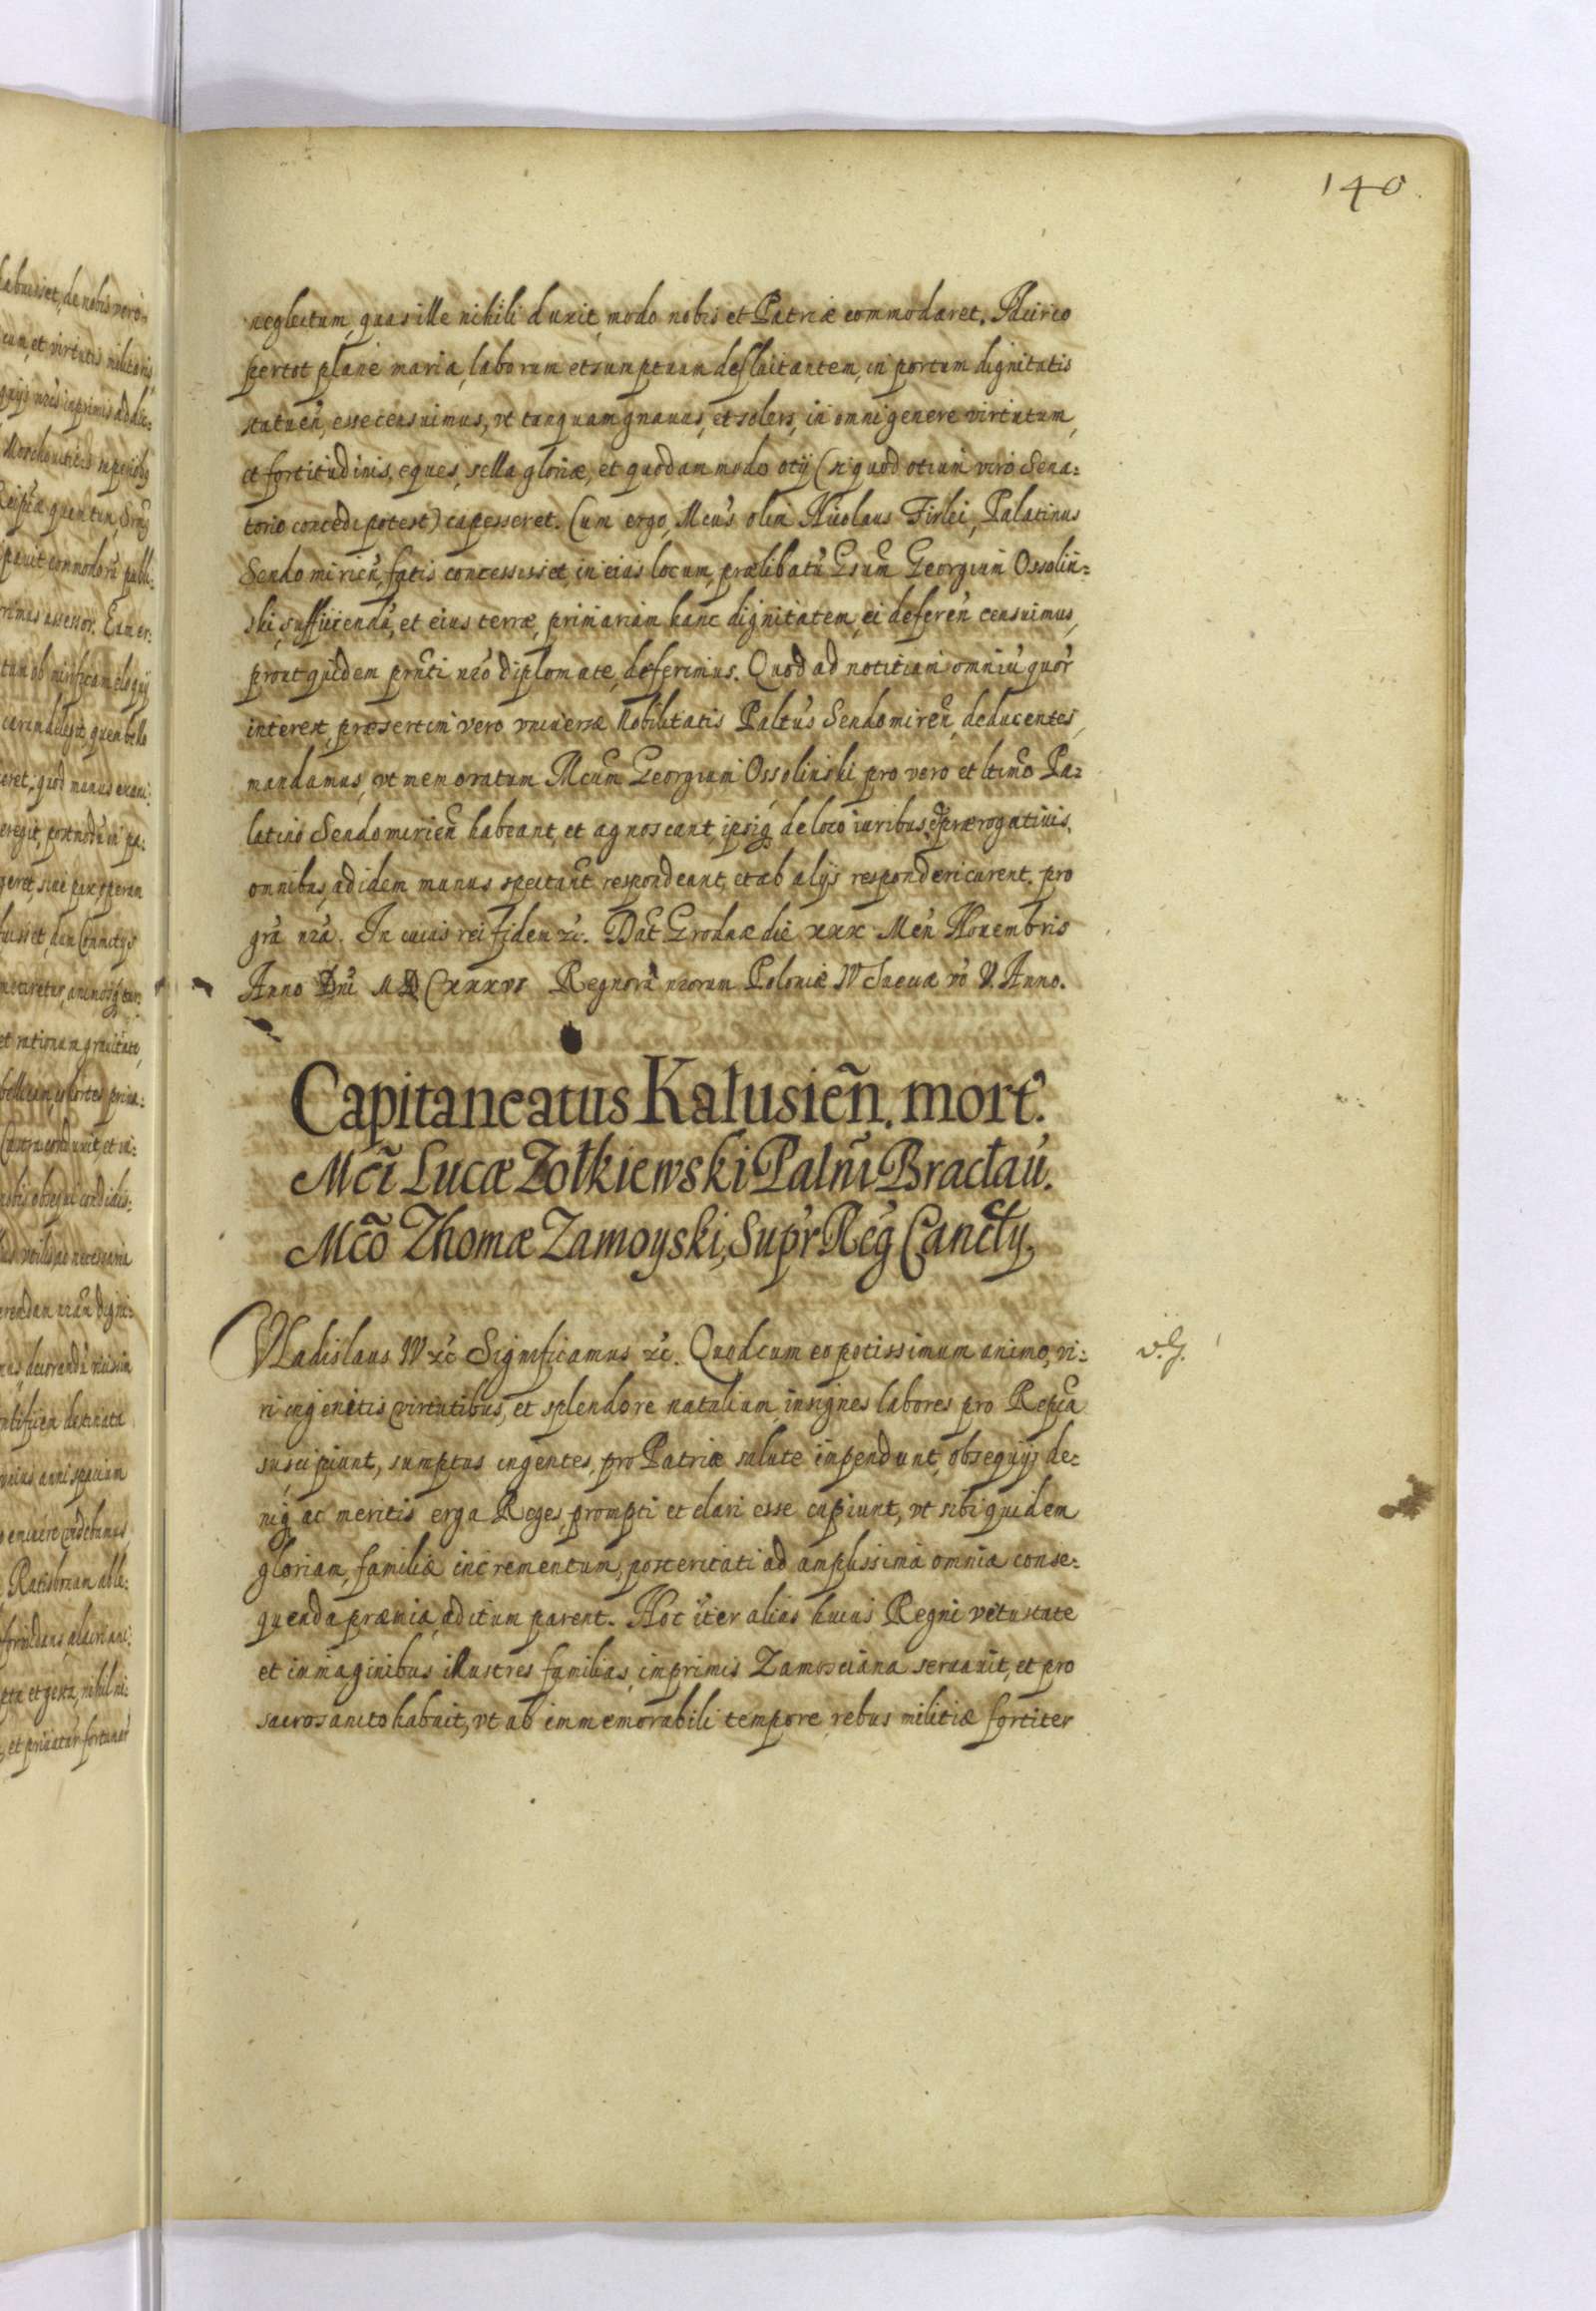 140
neglectum, quas ille nihili duxit, modo nobis et Patriæ commodaret. Idcirco
per tot plane maria, laborum et sumptuum defluitantem, in portum dignitatis
statuen̄, esse censuimus, vt tanquam gnauus, et solers, in omni genere virtutum,
et fortitudinis, eques, sella gloriæ, et quodam modo otij (si quod otium viro Sena:
torio concedi potest) capesseret. Cum ergo, Mcus olim Nicolaus Firlei, Palatinus
Sendomirien̄, fatis concessisset, in eius locum, prælibatū Gsum̄ Georgium Ossolin:
ski, sufficiendū, et eius terræ, primariam hanc dignitatem, ei deferen̄ censuimus,
prout quidem prnti nro diplomate, deferimus. Quod ad notitiam omniū quor̄
interest, præsertim vero vniuersæ Nobilitatis Paltus Sendomiren̄, deducentes,
mandamus, vt memoratum Mcum̄ Georgium Ossolinski pro vero et ltimo Pa:
latino Sendomirien̄ habeant, et agnoscant, ipsiq de loco iuribus, et prærogatiuis,
omnibus, ad idem munus spectan̄t respondeant, et ab alijs responderi curent. pro
gra nra. In cuius rei fidem &c. Dat Grodnæ die xxx Men̄ Nouembris
Anno Dni MDCxxxvi Regnorū nrorum Poloniæ IV Sueciæ vo V. Anno.
Capitaneatus Kałusien̄. mort.
Mci Lucæ Żołkiewski Palni Bracław.
Mco Thomæ Zamoyski, Supr Reg Canclly,
Vladislaus IV &c Significamus &c. Quod cum eo potissimum animo, vi:
v. G.
ri ingenitis virtutibus, et splendore natalium, insignes labores pro Repca
suscipiunt, sumptus ingentes, pro Patriæ salute inpendunt, obsequijs de:
niq ac meritis erga Reges, prompti et clari esse cupiunt, vt sibi quidem
gloriam, familiæ incrementum, posteritati ad amplissima omnia conse:
quenda præmia, aditum parent. Hoc iter alias huius Regni vetustate
et inmaginibus illustres familias, inprimis Zamosciana seruauit, et pro
sacrosancto habuit, vt ab immemorabili tempore, rebus militiæ fortiter